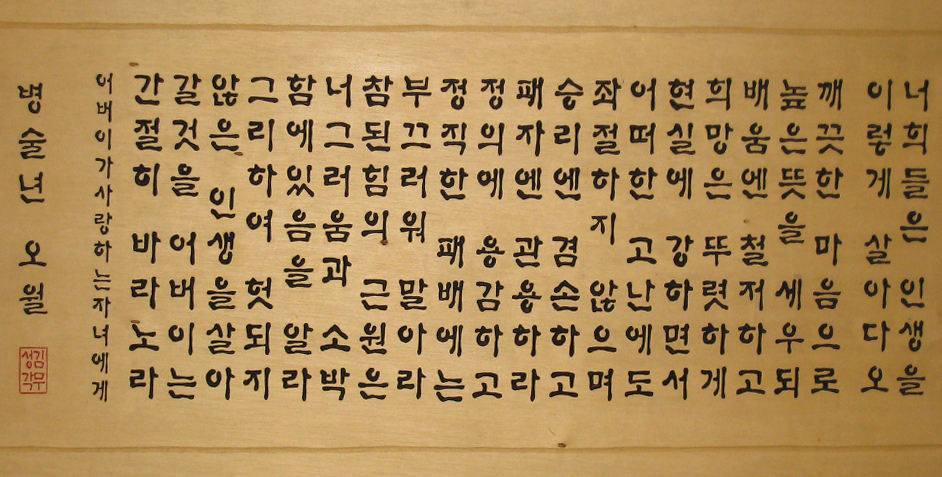 너희들은 인생을
이렇게 살아다오
깨끗한 마음으로
높은뜻을 세우되
배움엔 철저하고
희망은 뚜렷하게
현실에 강하면서
어떠한 고난에도
좌절하지 않으며
승리엔 겸손하고
패자엔 관용하라
정의에 용감하고
정직한 패배에는
부끄러워 말아라
참된힘의 근원은
너그러움과 소박
함에있음을 알라
그리하여 헛되지
않은 인생을살아
갈것을 어버이는
간절히 바라노라
어버이가사랑하는자녀에게
병술년 오월
김무
성각